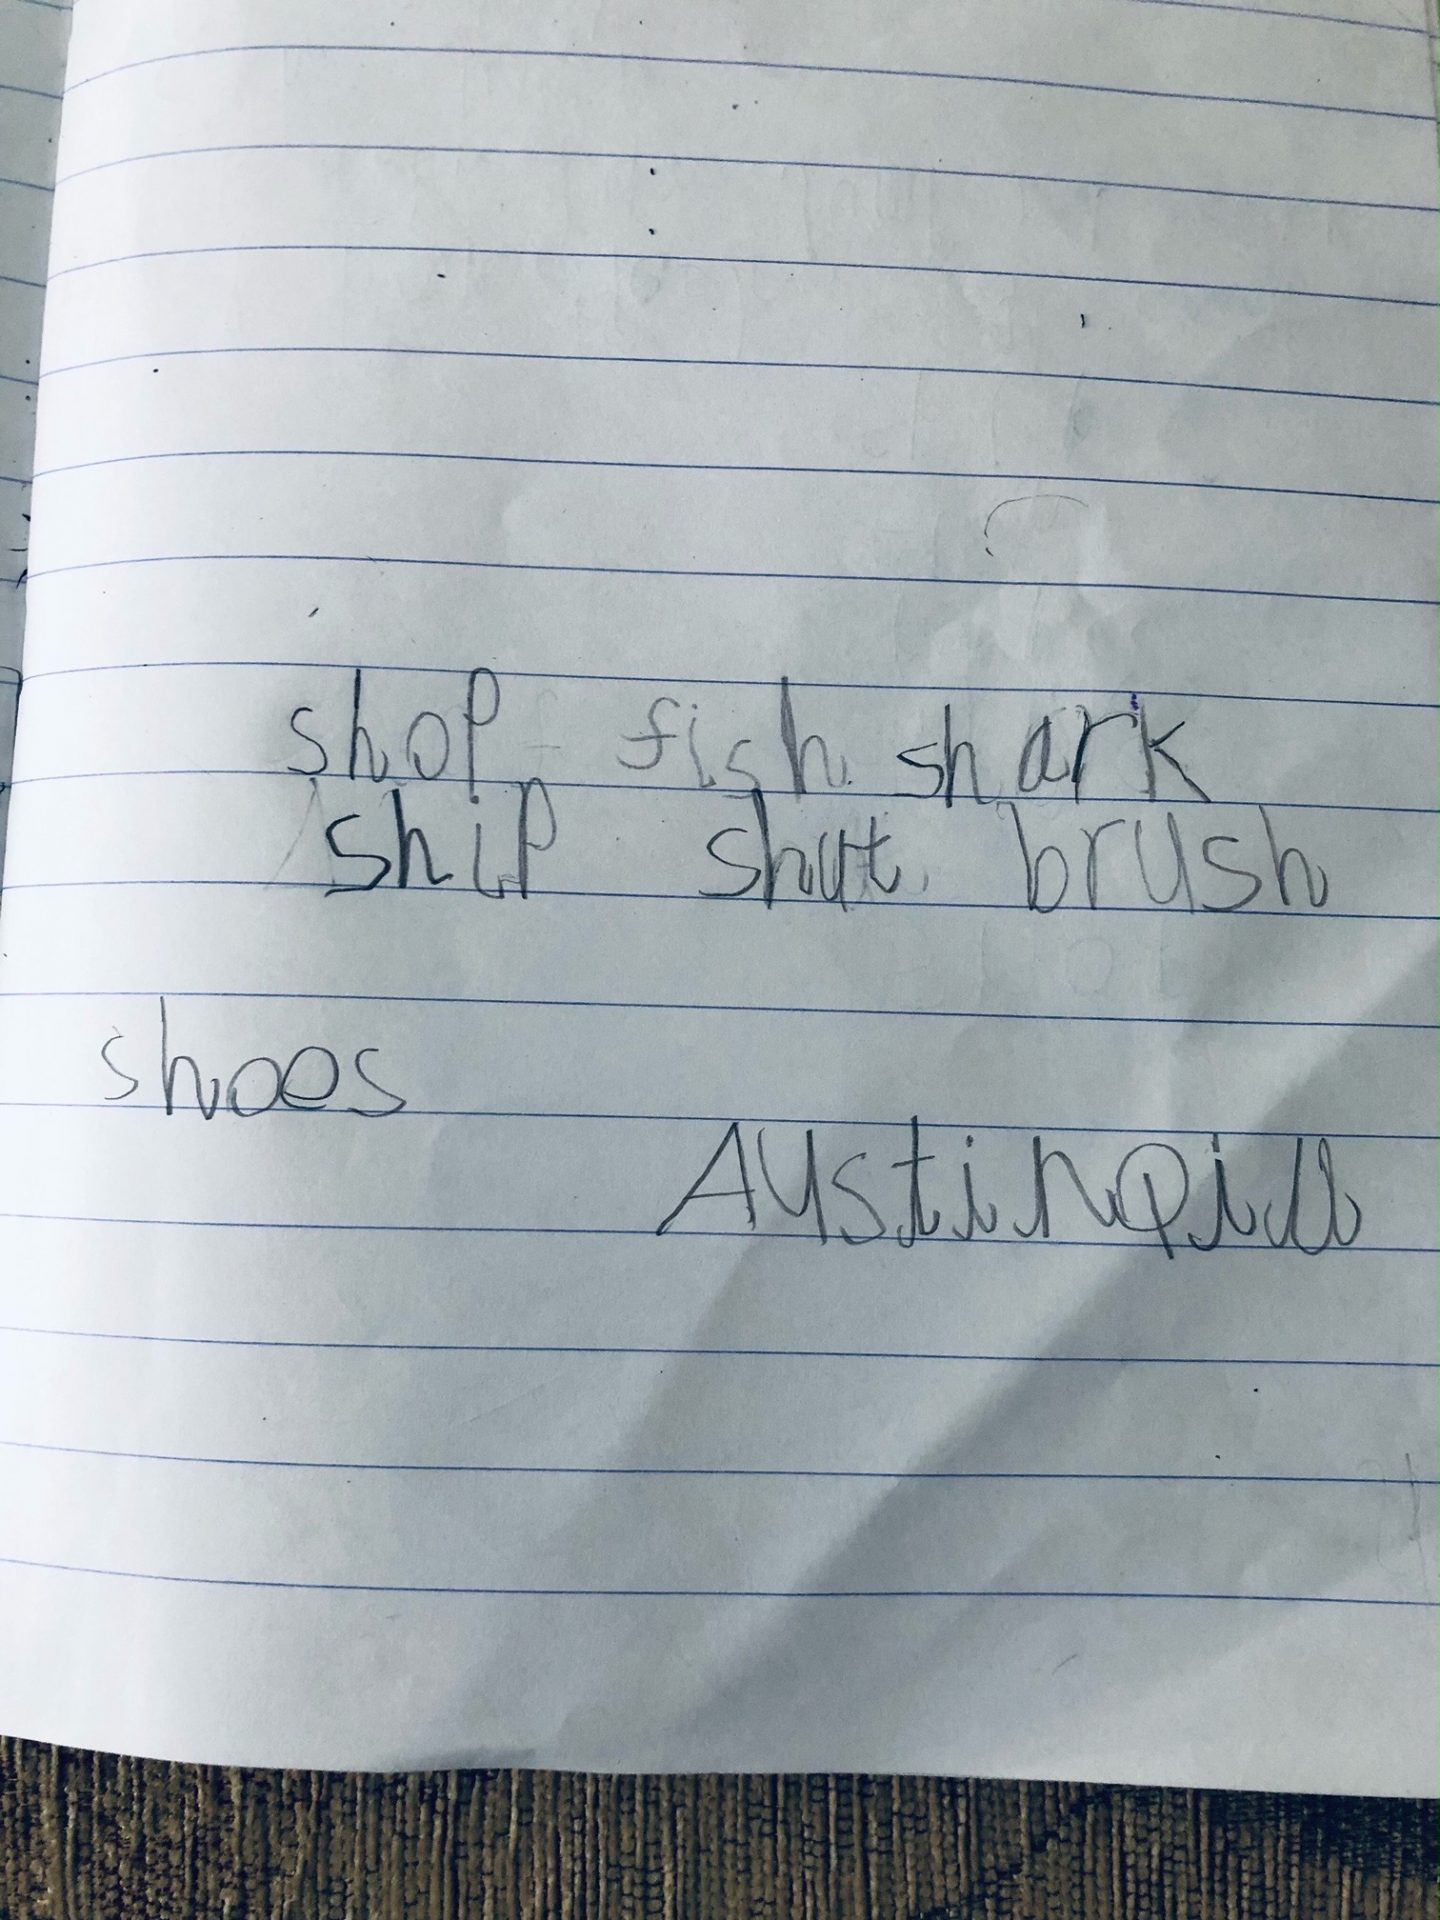 shop fish shark
ship shut brush
shoes
Austinpill